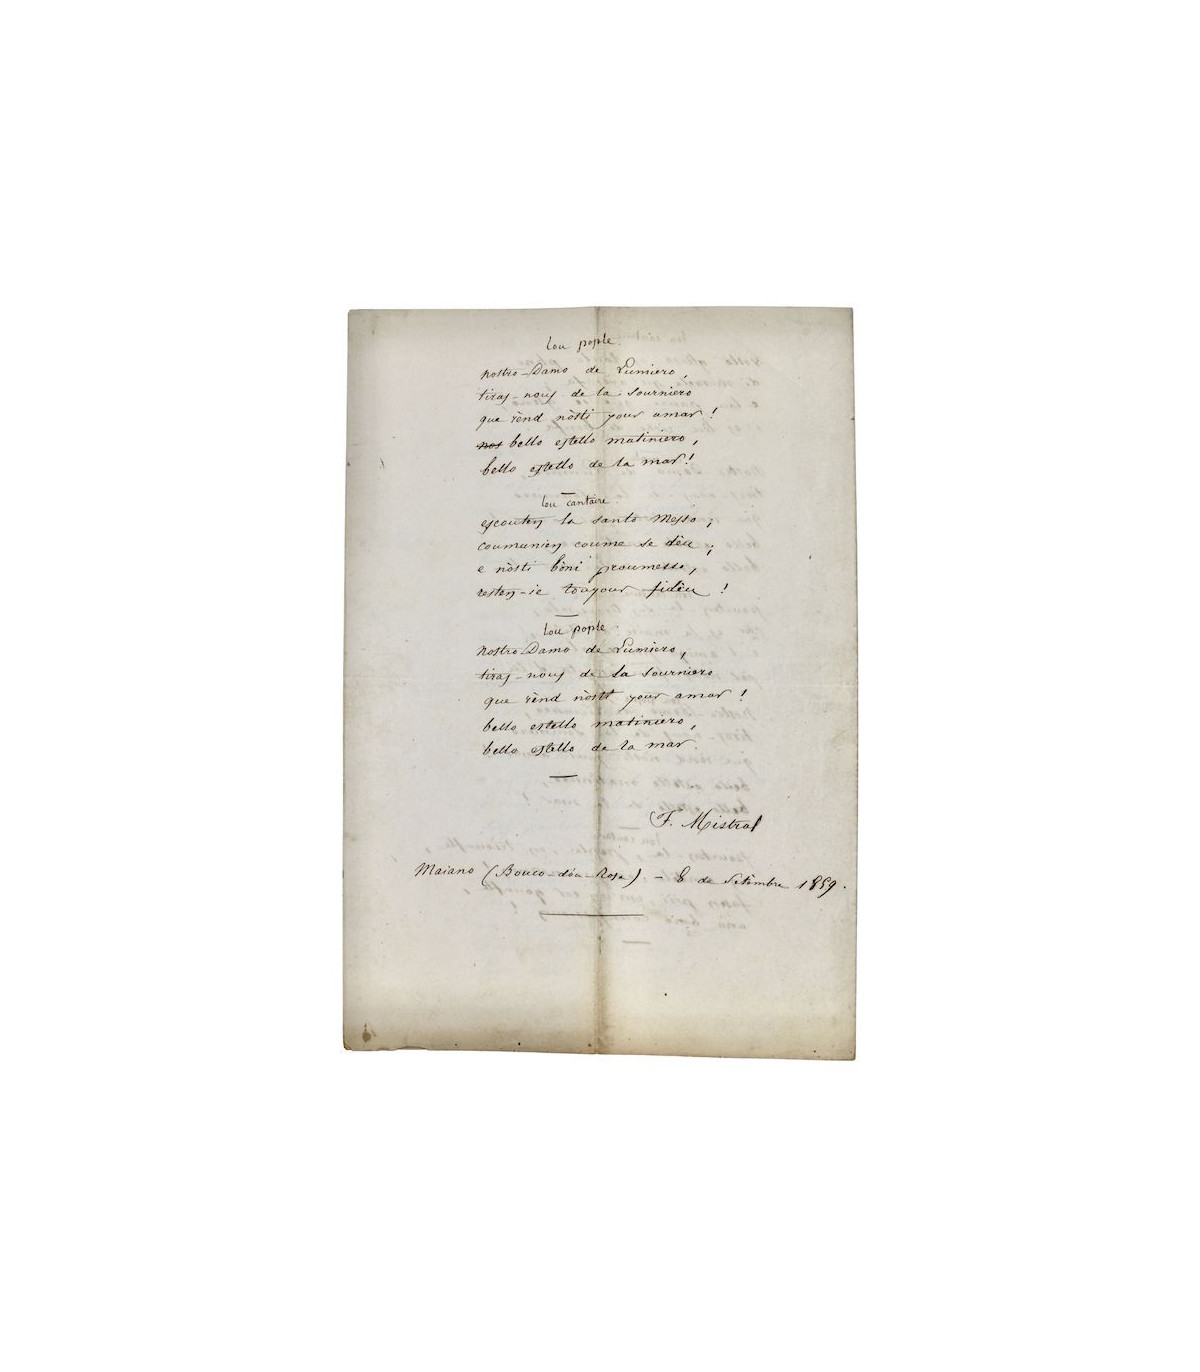 lou pople.
nostro-Damo de Lumiero,
tiras-nous de la sourniero
que rènd nòsti jour amar !
nos bello estello matiniero,
bello estello de la mar !
lou cantaire.
escouten la santo Messo ;
coumunien coume se dèu ;
e nòsti bòni proumesso,
resten-ie toujour fidèu !
lou pople.
nostro-Damo de Lumiero,
tiras-nous de la sourniero
que rènd nòsti jour amar !
bello estello matiniero,
bello estello de la mar.
F. Mistral
Maiano (Bouco-dóu-Rose) – 8 de Setèmbre 1859.